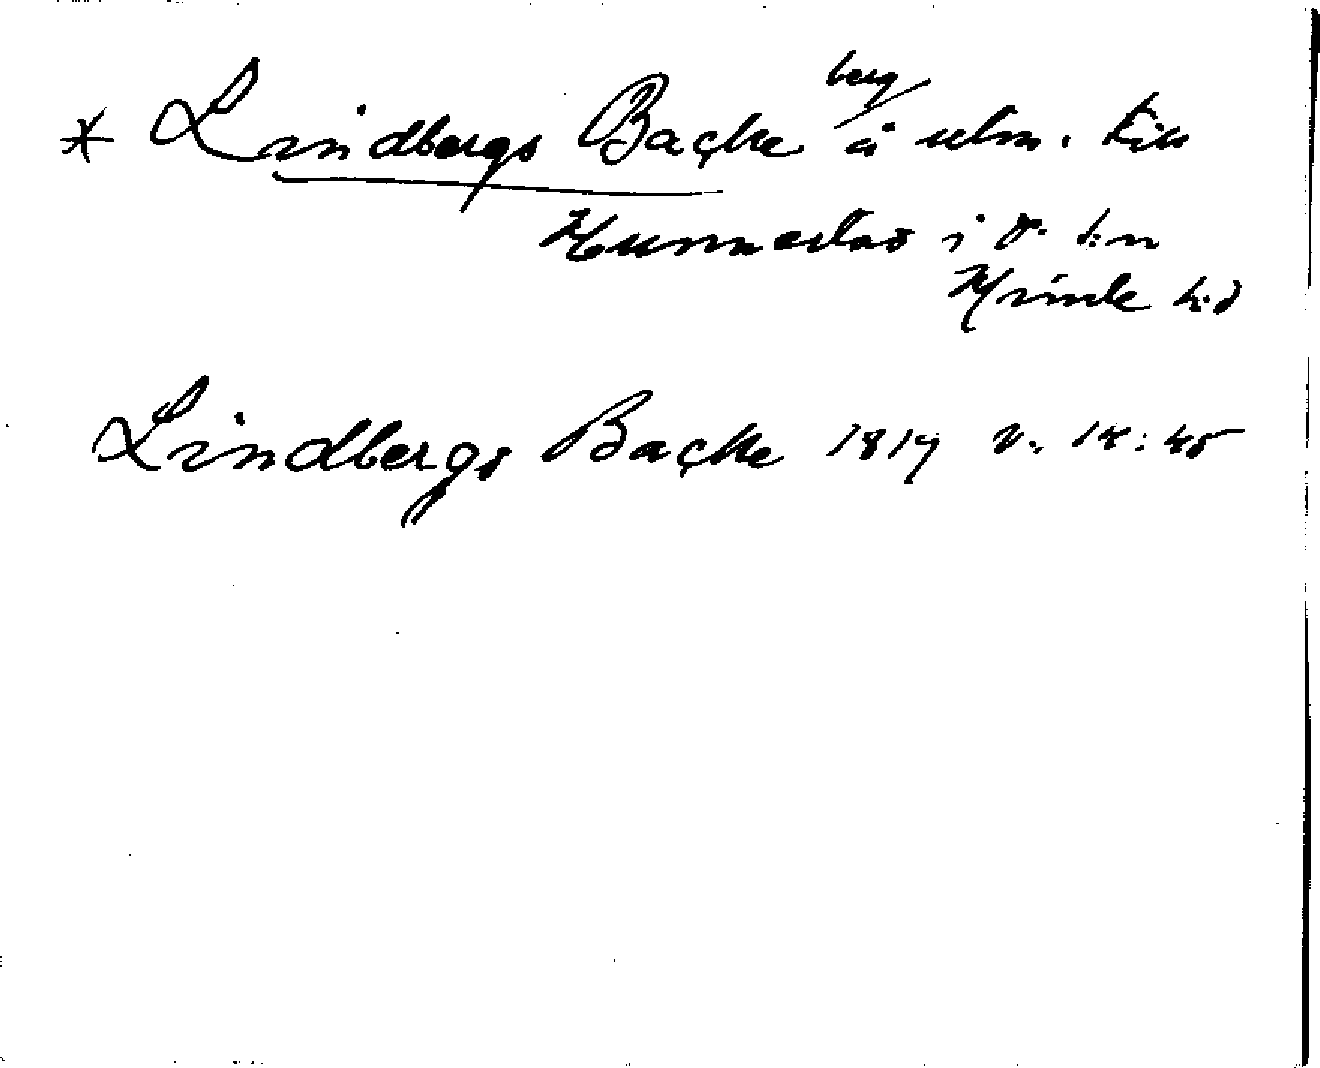 * Lindbergs Backe berg å utm. till
Hunnestad i d. s:n
Himle hd
Lindbergs Backe 1819 v. 14:45